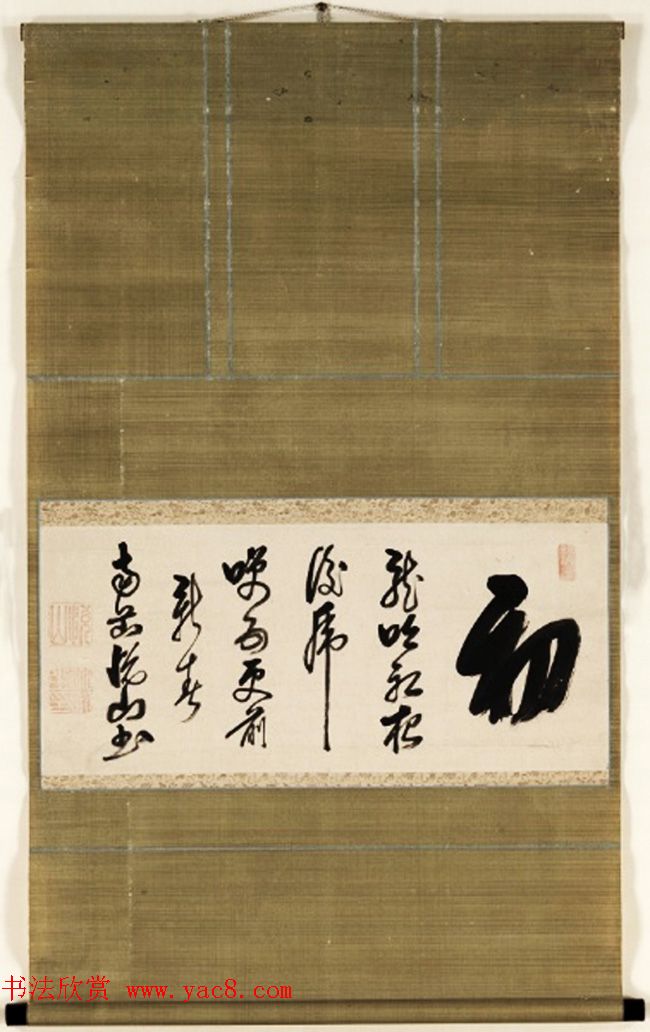 初
龍吟初夜
後虎
嘯五更前
新春
南岳悦山書
书法欣赏 www.yac8.com